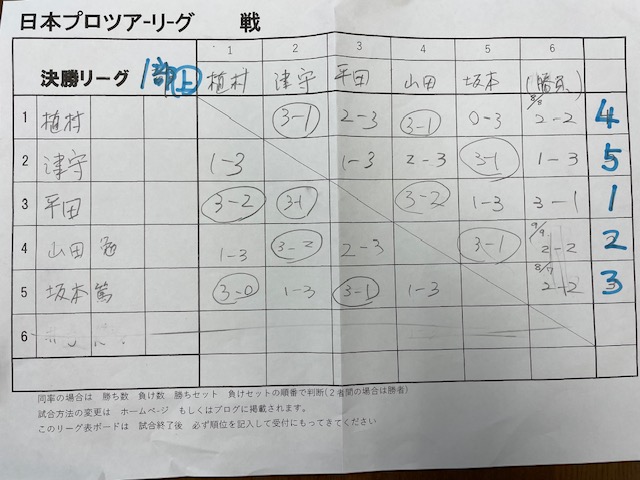 日本プロツアーリーグ　戦
1 2 3 4 5 6
決勝リーグ 1部上 植村 津守 平田 山田 坂本 (勝系)
1 植村 3-1 2-3 3-1 0-3 8/8 2-2 4
2 津守 1-3 1-3 2-3 3-1 1-3 5
3 平田 3-2 3-1 3-2 1-3 3-1 1
4 山田 1-3 3-2 2-3 3-1 9/9 2-2 2
5 坂本篤 3-0 1-3 3-1 1-3 8/7 2-2 3
6
同率の場合は　勝ち数　負け数　勝ちセット　負けセットの順番で判断(２者間の場合は勝者)
試合方法の変更は　ホームページ　もしくはブログに掲載されます。
このリーグ表ボードは　試合終了後　必ず順位を記入して受付にもってきてください